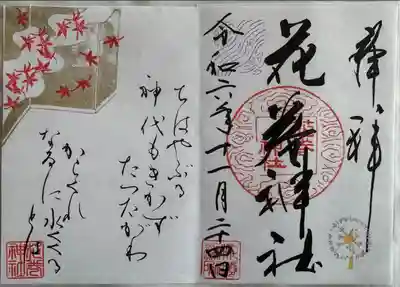 奉拝
花神社
令和六年十一月二十四日
ちはやぶる
神代もきかず
たつたがわ
からくれ
なゐに水くくる
とは